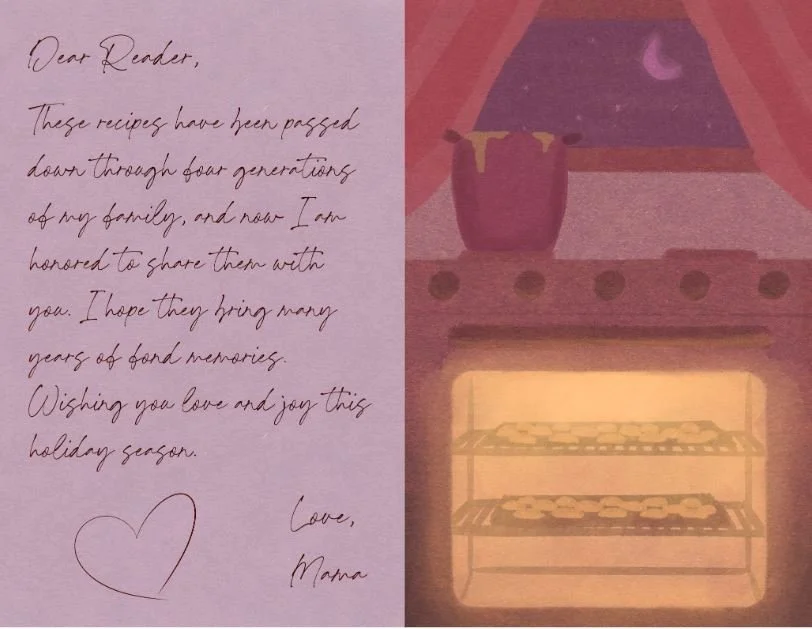 Dear Reader,
These recipes have been passed
down through four generations
of my family, and now I am
honored to share them with
you. I hope they bring many
years of fond memories.
Wishing you love and joy this
holiday season.
Love,
Mama